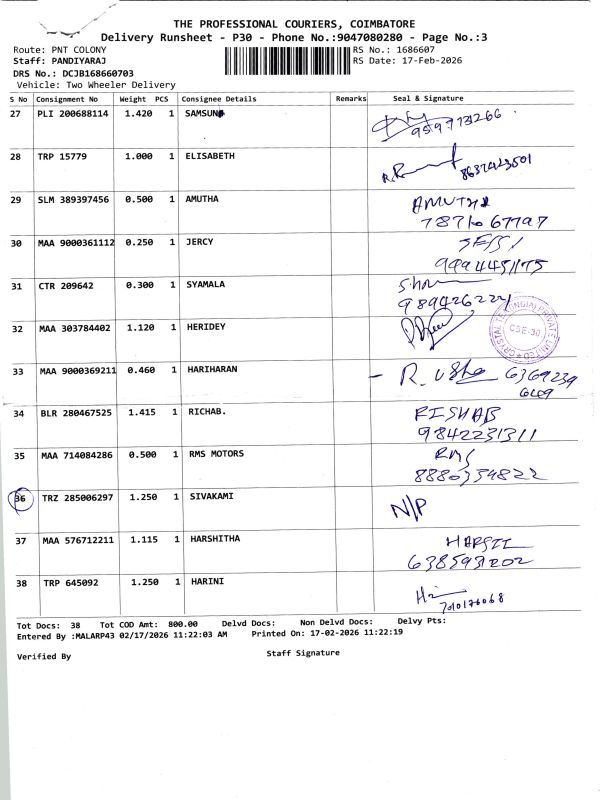 THE PROFESSIONAL COURIERS, COIMBATORE
Delivery Runsheet - P30 - Phone No.:9047080280 - Page No.:3
Route: PNT COLONY
RS No.: 1686607
Staff: PANDIYARAJ
RS Date: 17-Feb-2026
DRS No.: DCJB168660703
Vehicle: Two Wheeler Delivery
S No Consignment No Weight PCS Consignee Details Remarks Seal & Signature
27 PLI 200688114 1.420 1 SAMSUN
28 TRP 15779 1.000 1 ELISABETH
8637423501
29 SLM 389397456 0.500 1 AMUTHA AMUTHA
78710 67797
30 MAA 9000361112 0.250 1 JERCY
9994451175
31 CTR 209642 0.300 1 SYAMALA
9894262221
32 MAA 303784402 1.120 1 HERIDEY
CSE-30
33 MAA 9000369211 0.460 1 HARIHARAN R. Usha 6369239
34 BLR 280467525 1.415 1 RICHAB. RISHAB
9842231311
35 MAA 714084286 0.500 1 RMS MOTORS RMS
8880354822
36 TRZ 285006297 1.250 1 SIVAKAMI N/P
37 MAA 576712211 1.115 1 HARSHITHA
6385931202
38 TRP 645092 1.250 1 HARINI
7010176068
Tot Docs: 38 Tot COD Amt: 800.00 Delvd Docs: Non Delvd Docs: Delvy Pts:
Entered By :MALARP43 02/17/2026 11:22:03 AM Printed On: 17-02-2026 11:22:19
Verified By Staff Signature